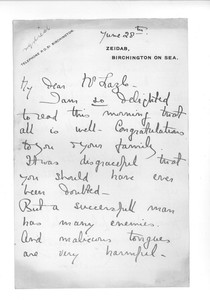 TELEPHONE NO. 81 BIRCHINGTON.
June 28th.
ZEIDAB,
BIRCHINGTON ON SEA.
My dear Mr Laszlo -
I am so delighted
to read this morning that
all is well - Congratulations
to you & your family,
It was disgraceful that
you should have ever
been doubted -
But a successfull man
has many enemies.
And malicious tongues
are very harmful -